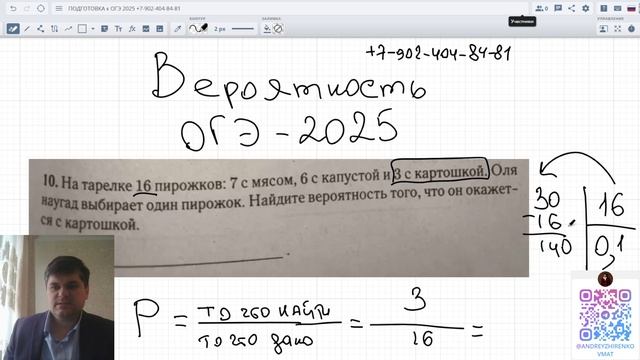 ПОДГОТОВКА к ОГЭ 2025 +7-902-404-84-81
КОНТУР
ЗАЛИВКА
Участники
УПРАВЛЕНИЕ
2 px
+7-902-404-84-81
Вероятность
ОГЭ-2025
10. На тарелке 16 пирожков: 7 с мясом, 6 с капустой и 3 с картошкой. Оля
наугад выбирает один пирожок. Найдите вероятность того, что он окажет-
ся с картошкой.
30 16
-16 0,1
140
P = то что найти / то что дано = 3 / 16 =
@ANDREYZHIRENKO
VMAT